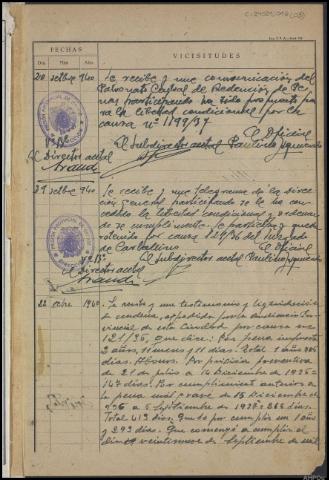 FECHAS
VICISITUDES
Día Mes Año
20 setbre 940 Se recibe y une comunicación del
Patronato Central de Redención de Pe
nas participando ha sido propuesto pa
ra la libertad condicional por la
causa nº 1199/37
El Oficial
Vº Bº El Subdirector acctal Paulino
El Director acctal
21 setbre 940 Se recibe y une telegrama de la Direc
ción General participando se le ha con
cedido la libertad condicional y ordenan
do se cumplimente. Se participa y queda
retenido por causa 121/36 del Juzgado
de Carballino El Oficial
Vº Bº El Subdirector acctal Paulino
El Director acctal
22 octre 1940 Se recibe y une testimonio y liquidación
de condena, expedido por la Audiencia Pro
vincial de esta Ciudad por causa nº
121/36, que dice: Pena impuesta
2 años, 11 meses y 11 días. Total 1 año
días. Abonos. Por prisión preventiva
de 21 de julio a 14 Diciembre de 1936=
147 días. Por cumplimiento anterior a
la pena más grave de 15 Diciembre de
936 a 5 Septiembre de 1937= 266 días.
Total 413 días. Queda por cumplir un 1 año
y 293 días. Que comenzó a cumplir el
día veintiuno de Septiembre de mil